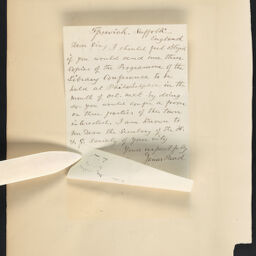 Ipswich. Suffolk.
England
Dear Sir, I should feel obliged
if you would send me three
Copies of the Programme of the
Library Conference to be
held at Philadelphia in the
month of Oct. next by doing
so you would confer a favor
on three parties of this town
interested. I am known to
the Secretary of the H.
Society of your city
Yours respectfully
James Read.